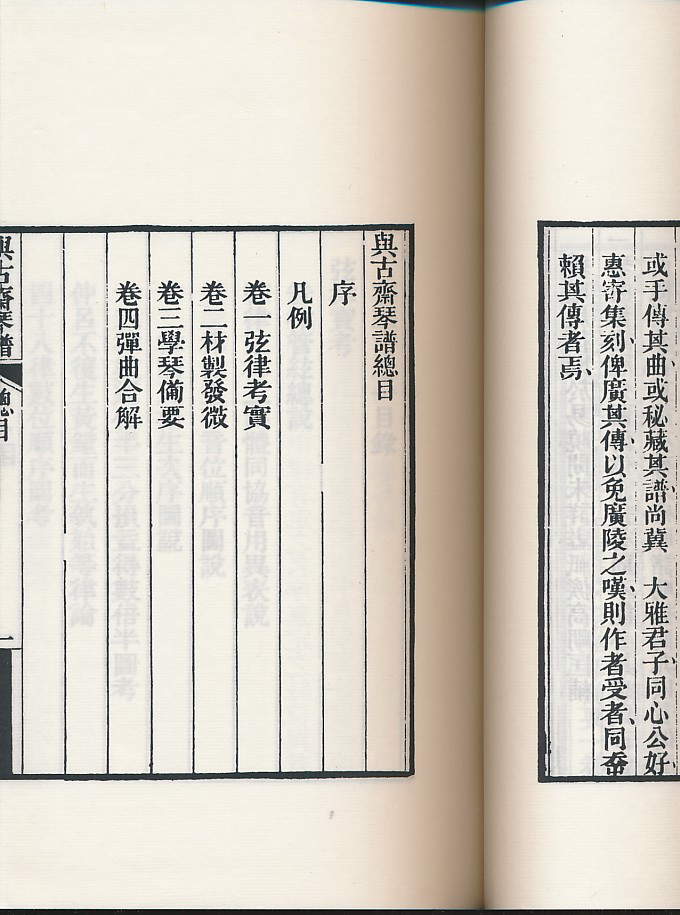 或手傳其曲或秘藏其譜尚冀　大雅君子同心公好
惠寄集刻俾廣其傳以免廣陵之嘆則作者受者同
賴其傳者焉
與古齋琴譜總目
序
凡例
卷一弦律考實
卷二材製發微
卷三學琴備要
卷四彈曲合解
與古齋琴譜
總目
一